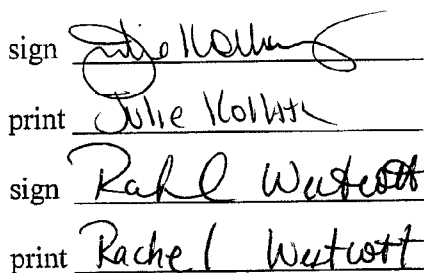 sign Julie
print Julie
sign Rachel Westcott
print Rachel Westcott